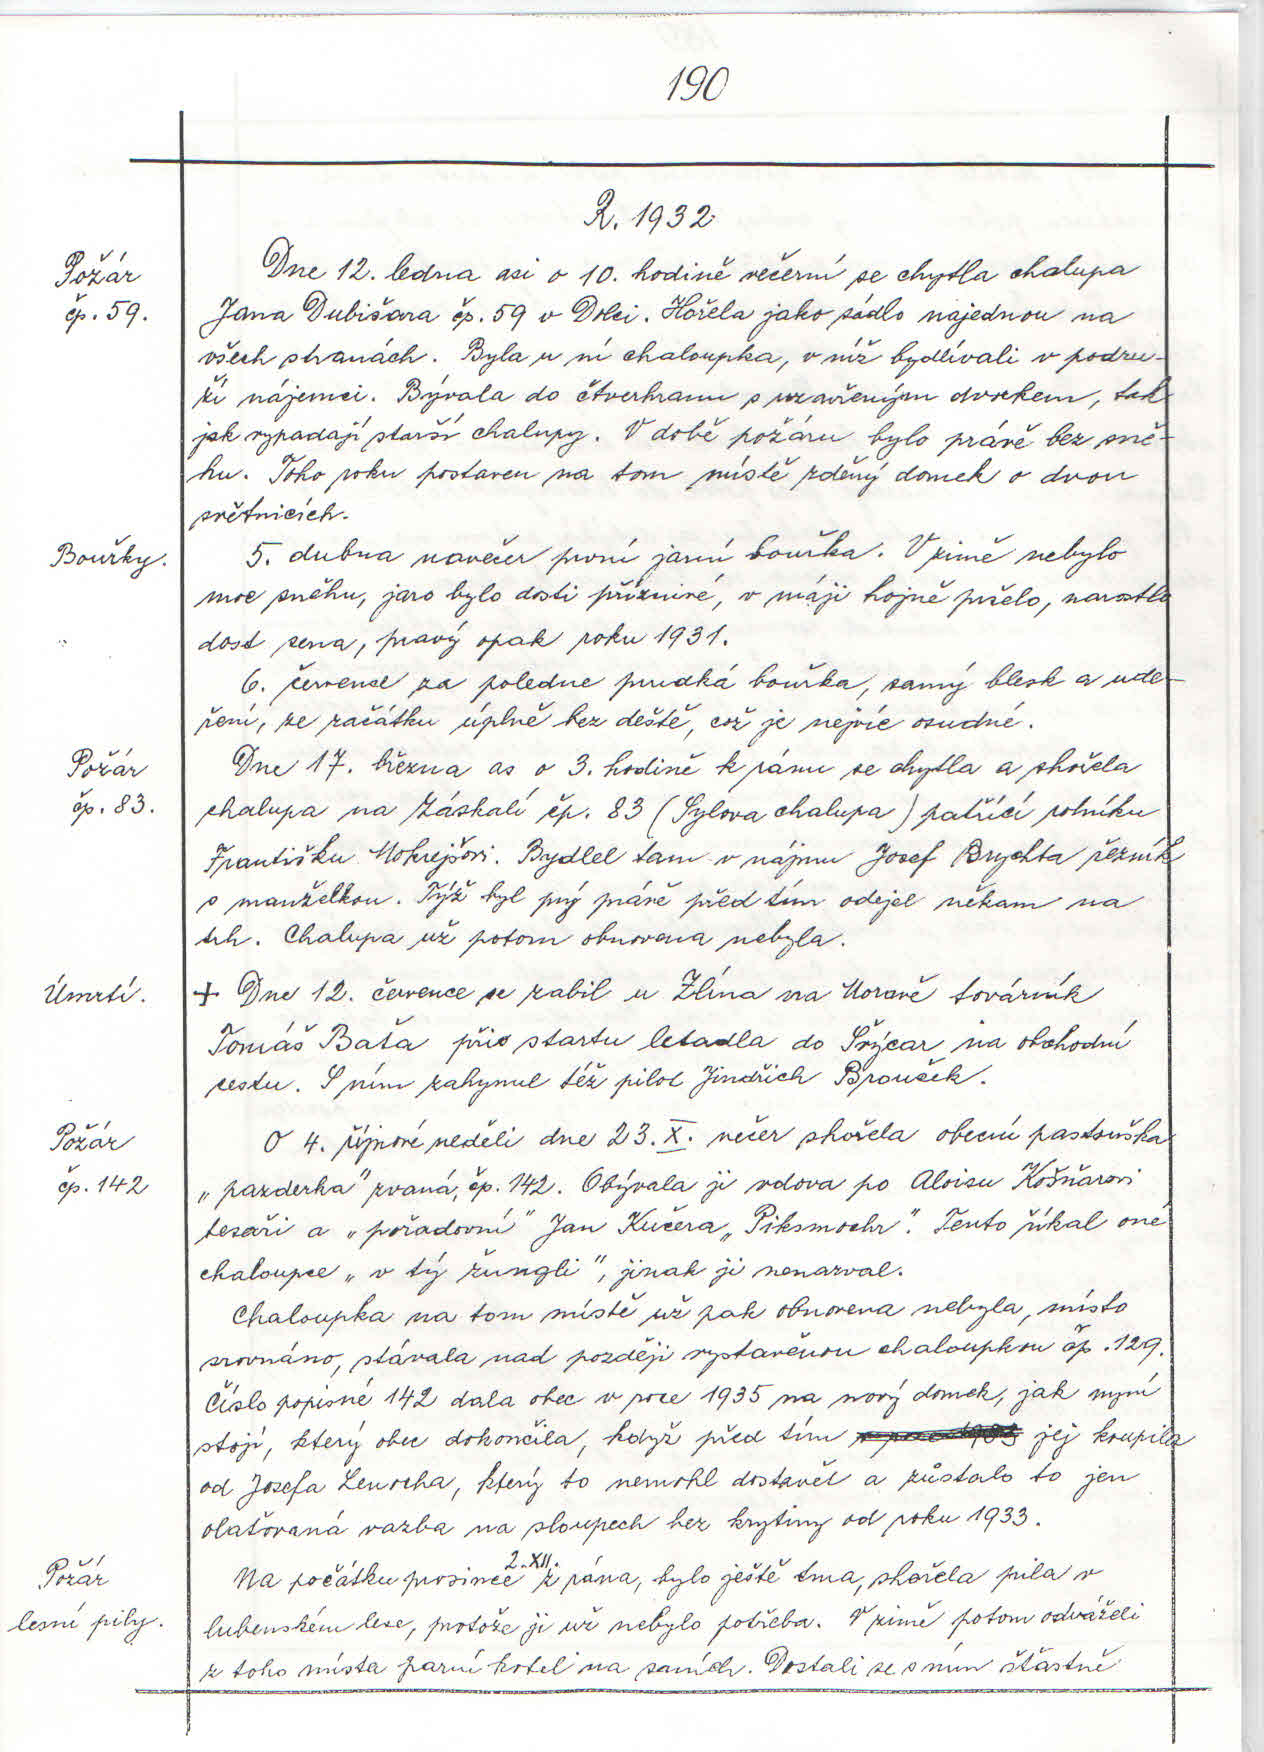 190
R. 1932.
Požár
čp. 59.
Dne 12. ledna asi o 10. hodině večerní se chytla chalupa
Jana Dubišara čp. 59 v Dolci. Hořela jako sádlo najednou na
všech stranách. Byla u ní chaloupka, v níž bydlívali v podru-
ží nájemci. Bývala do čtverhranu s uzavřeným dvorkem, tak
jak vypadají starší chalupy. V době požáru bylo právě bez sně-
hu. Toho roku postaven na tom místě zděný domek o dvou
světnicích.
Bouřky.
5. dubna navečer první jarní bouřka. V zimě nebylo
moc sněhu, jaro bylo dosti příznivé, v máji hojně pršelo, narostlo
dost sena, pravý opak roku 1931.
6. července za poledne prudká bouřka, samý blesk a ude-
ření, ze začátku úplně bez deště, což je nejvíc osudné.
Požár
čp. 83.
Dne 17. března as o 3. hodině k ránu se chytla a shořela
chalupa na Záskalí čp. 83 (Sylova chalupa) patřící rolníku
Františku Mokrejšovi. Bydlel tam v nájmu Josef Brychta řezník
s manželkou. Týž byl prý právě před tím odejel někam na
trh. Chalupa už potom obnovena nebyla.
Úmrtí.
+ Dne 12. července se zabil u Zlína na Moravě továrník
Tomáš Baťa při startu letadla do Švýcar na obchodní
cestu. S ním zahynul též pilot Jindřich Brouček.
Požár
čp. 142
O 4. říjnové neděli dne 23. X. večer shořela obecní pastouška
„pazderka" zvaná, čp. 142. Obývala ji vdova po Aloisu Košňarovi
tesaři a „pořadovní" Jan Kučera „Piksmochr". Tento říkal oné
chaloupce „v tý žungli", jinak ji nenazval.
Chaloupka na tom místě už pak obnovena nebyla, místo
srovnáno, stávala nad později vystavěnou chaloupkou čp. 129.
Číslo popisné 142 dala obec v roce 1935 na nový domek, jak nyní
stojí, který obec dokončila, když před tím jej koupila
od Josefa Lenocha, který to nemohl dostavět a zůstalo to jen
olaťovaná vazba na sloupech bez krytiny od roku 1933.
Požár
lesní pily.
Na počátku prosince 2. XII. z rána, bylo ještě tma, shořela pila v
lubenském lese, protože jí už nebylo potřeba. V zimě potom odváželi
z toho místa parní kotel na saních. Dostali se s ním šťastně